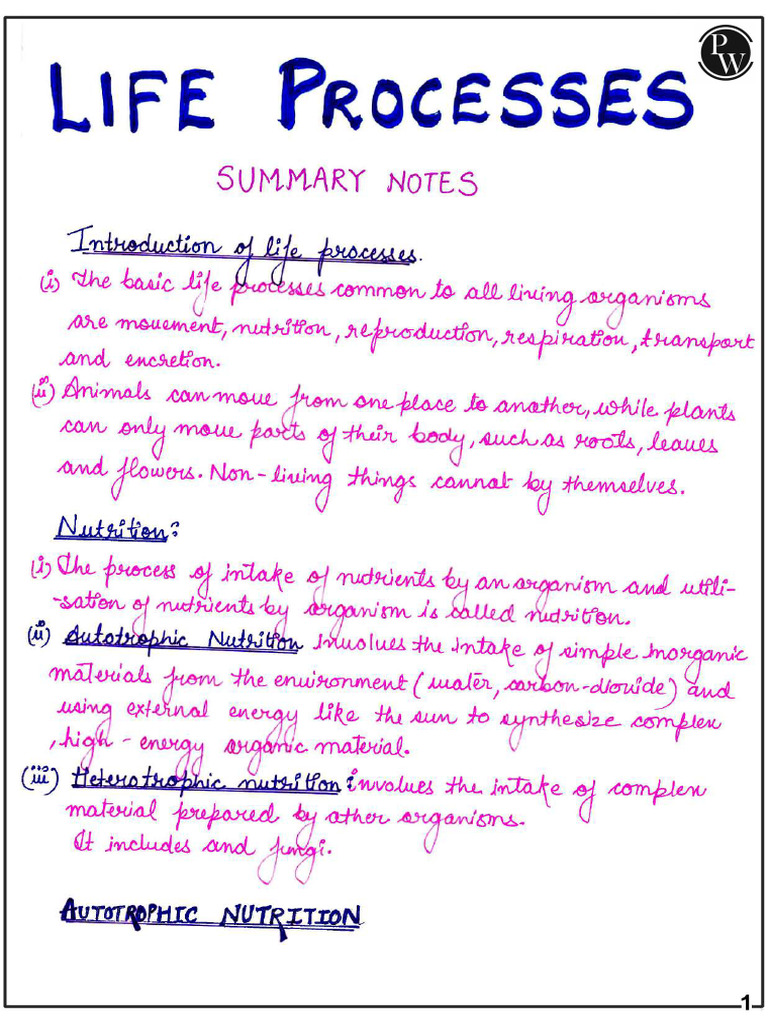 P
W
LIFE PROCESSES
SUMMARY NOTES
Introduction of life processes.
(i) The basic life processes common to all living organisms
are movement, nutrition, reproduction, respiration, transport
and excretion.
(ii) Animals can move from one place to another, while plants
can only move parts of their body, such as roots, leaves
and flowers. Non-living things cannot by themselves.
Nutrition:
(i) The process of intake of nutrients by an organism and utili-
-sation of nutrients by organism is called nutrition.
(ii) Autotrophic Nutrition involves the intake of simple inorganic
materials from the environment (water, carbon-dioxide) and
using external energy like the sun to synthesize complex
, high-energy organic material.
(iii) Heterotrophic nutrition: involves the intake of complex
material prepared by other organisms.
It includes and fungi.
AUTOTROPHIC NUTRITION
1